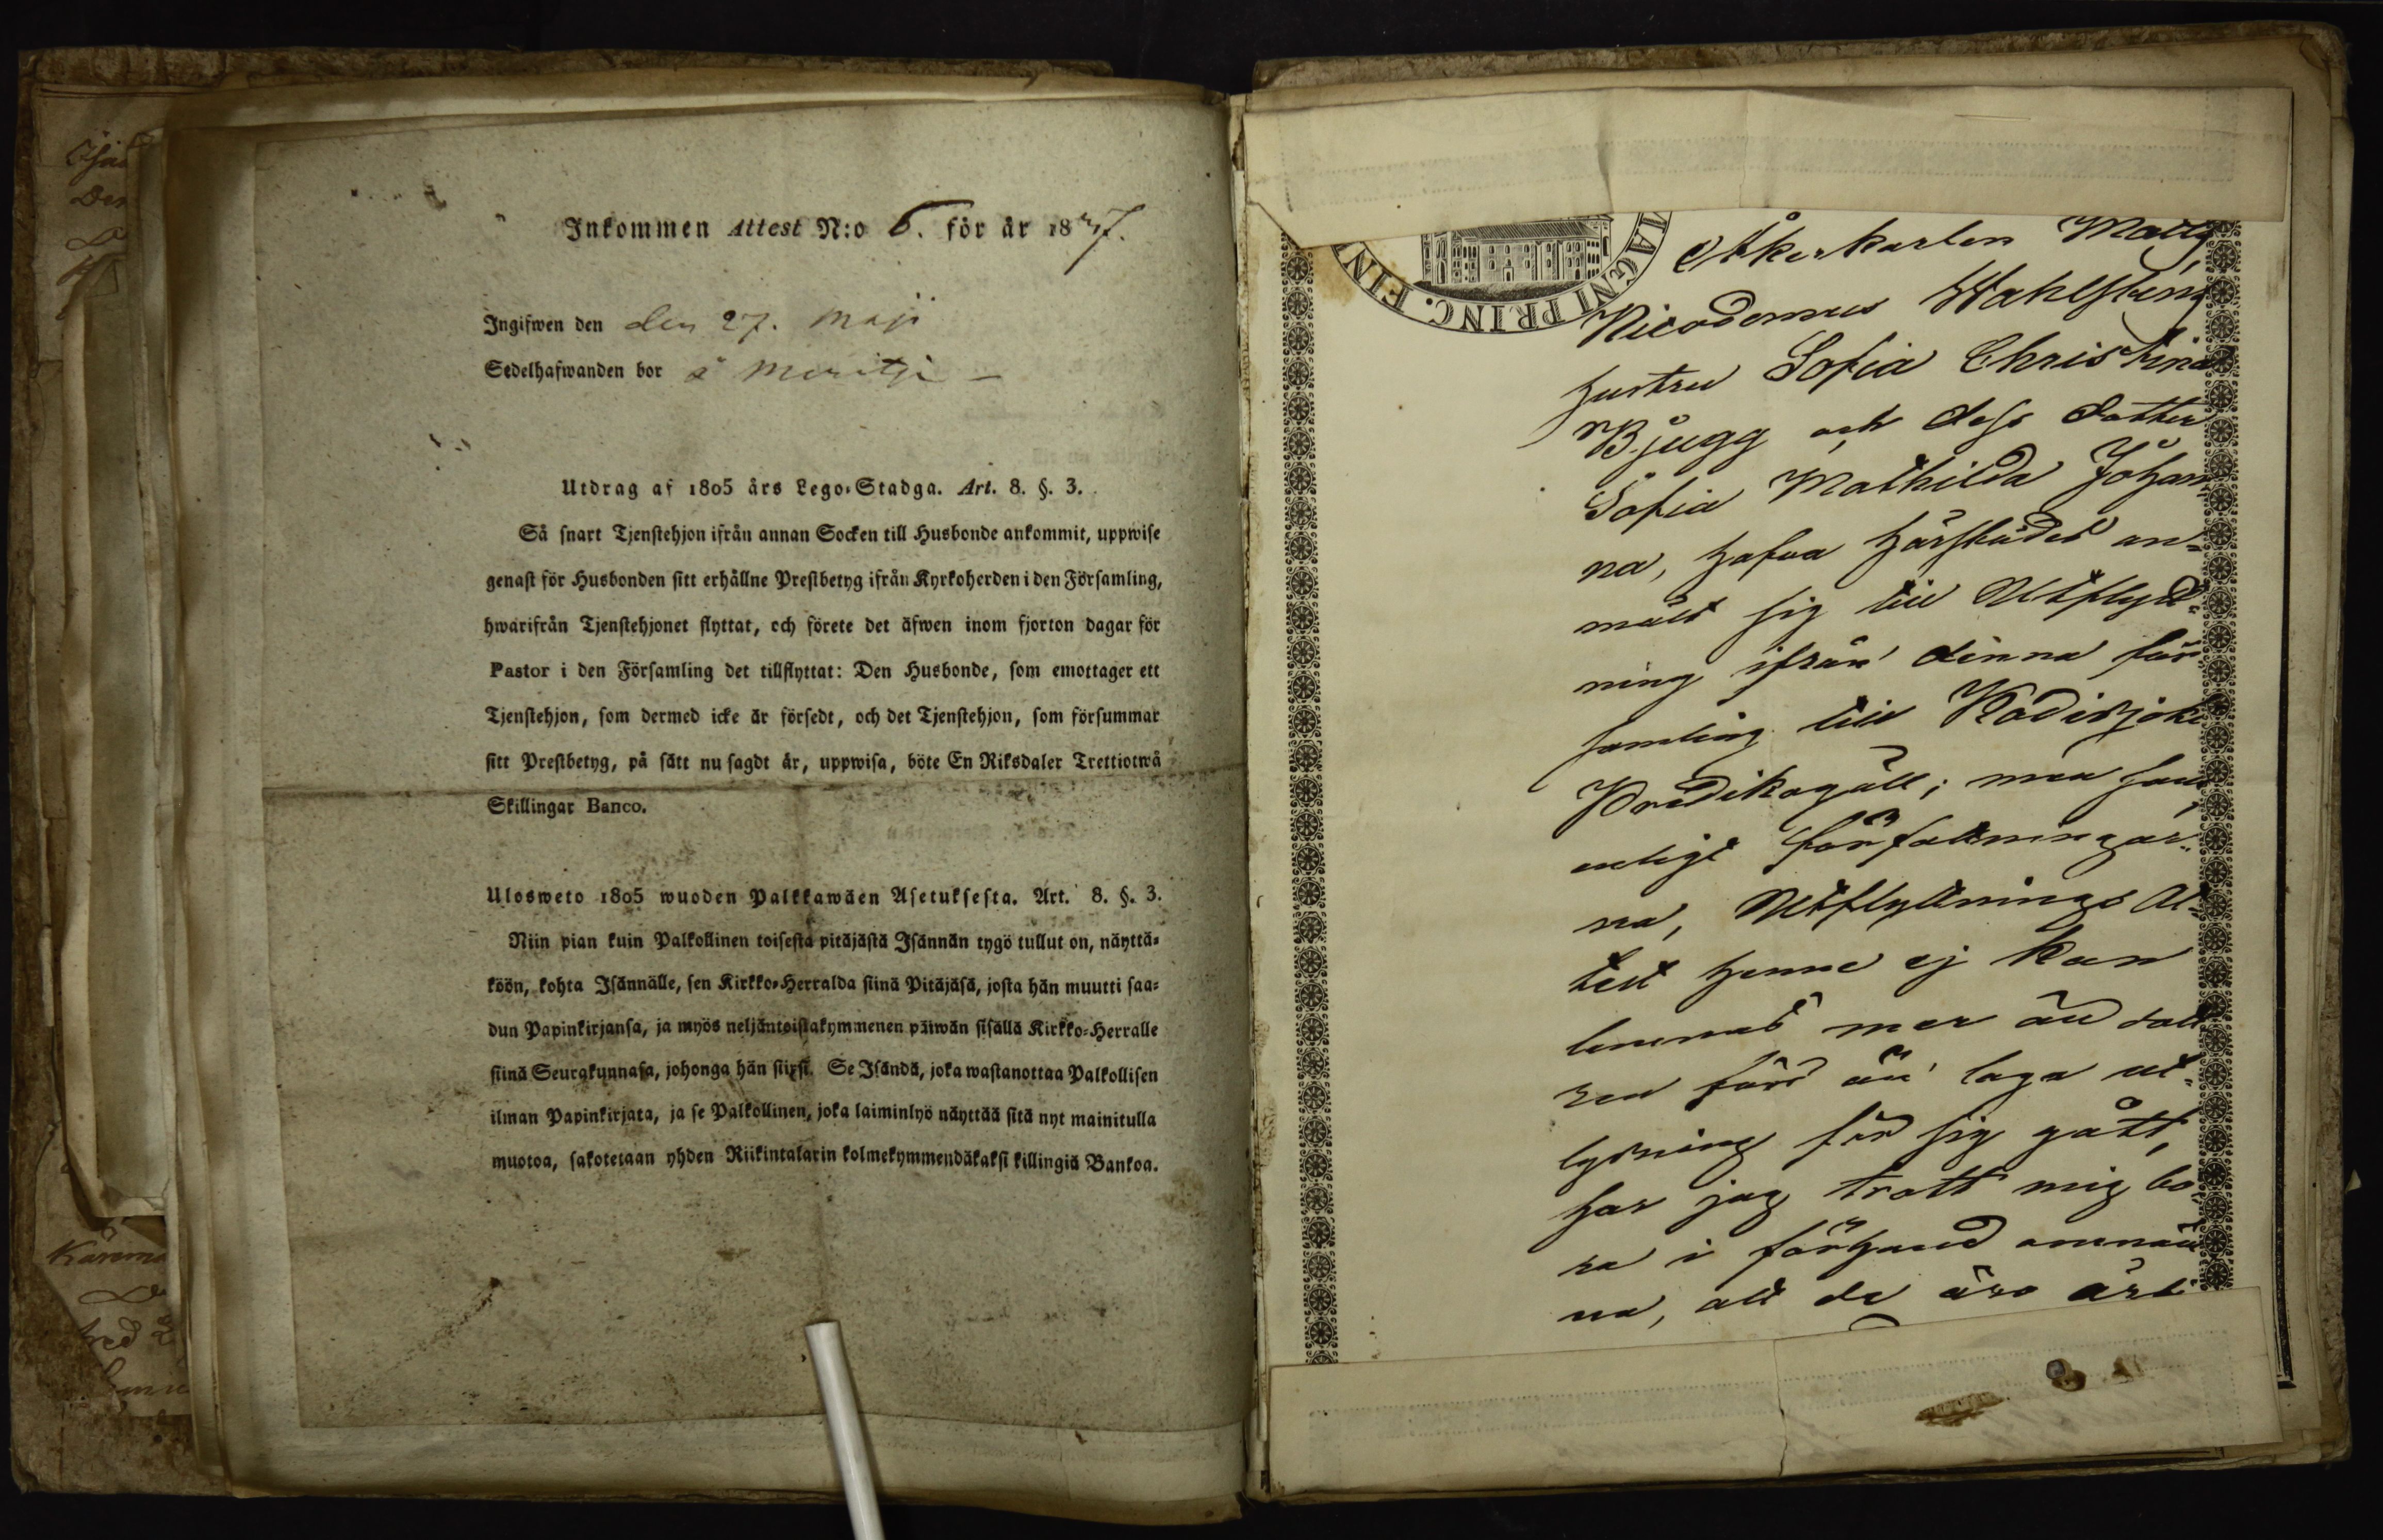 Inkommen Attest N:o 6. för år 1847.
Ingifwen den den 27. Maji
Sedelhafwanden bor å
Utdrag af 1805 års Lego-Stadga. Art. 8. §. 3.
Så snart Tjenstehjon ifrån annan Socken till Husbonde ankommit, uppwise
genast för Husbonden sitt erhållne Prestbetyg ifrån Kyrkoherden i den Församling,
hwarifrån Tjenstehjonet flyttat, och förete det äfwen inom fjorton dagar för
Pastor i den Församling det tillflyttat: Den Husbonde, som emottager ett
Tjenstehjon, som dermed icke är försedt, och det Tjenstehjon, som försummar
sitt Prestbetyg, på sätt nu sagdt är, uppwisa, böte En Riksdaler Trettiotwå
Skillingar Banco.
Ulosweto 1805 wuoden Palkkawäen Asetuksesta. Art. 8. §. 3.
Niin pian kuin Palkollinen toisesta pitäjästä Isännän tygö tullut on, näyttä-
köön, kohta Isännälle, sen Kirkko-Herralda siinä Pitäjäsä, josta hän muutti saa-
dun Papinkirjansa, ja myös neljäntoistakymmenen päiwän sisällä Kirkko-Herralle
siinä Seurakunnasa, johonga hän siirsi. Se Isändä, joka wastanottaa Palkollisen
ilman Papinkirjata, ja se Palkollinen, joka laiminlyö näyttää sitä nyt mainitulla
muotoa, sakotetaan yhden Riikintalarin kolmekymmendäkaksi killingiä Bankoa.
MAGNI PRINC. FIN
Åkerkarlen Matts
Nicodemus Wahlsténs
hustru Sofia Christina
Bjugg och dess dotter
Sofia Mathilda Johan-
na, hafva härstädes an-
mält sig till Utflytt-
ning ifrån denna för-
samling till
Predikogäll; men som
enligt författningar-
na, Utflyttnings At-
test henne ej kan
lemnas mer än
förr än laga ut-
lysning för sig gått,
har jag trott mig bo-
ra i förhand omnäm-
na, att de äro
Kärema